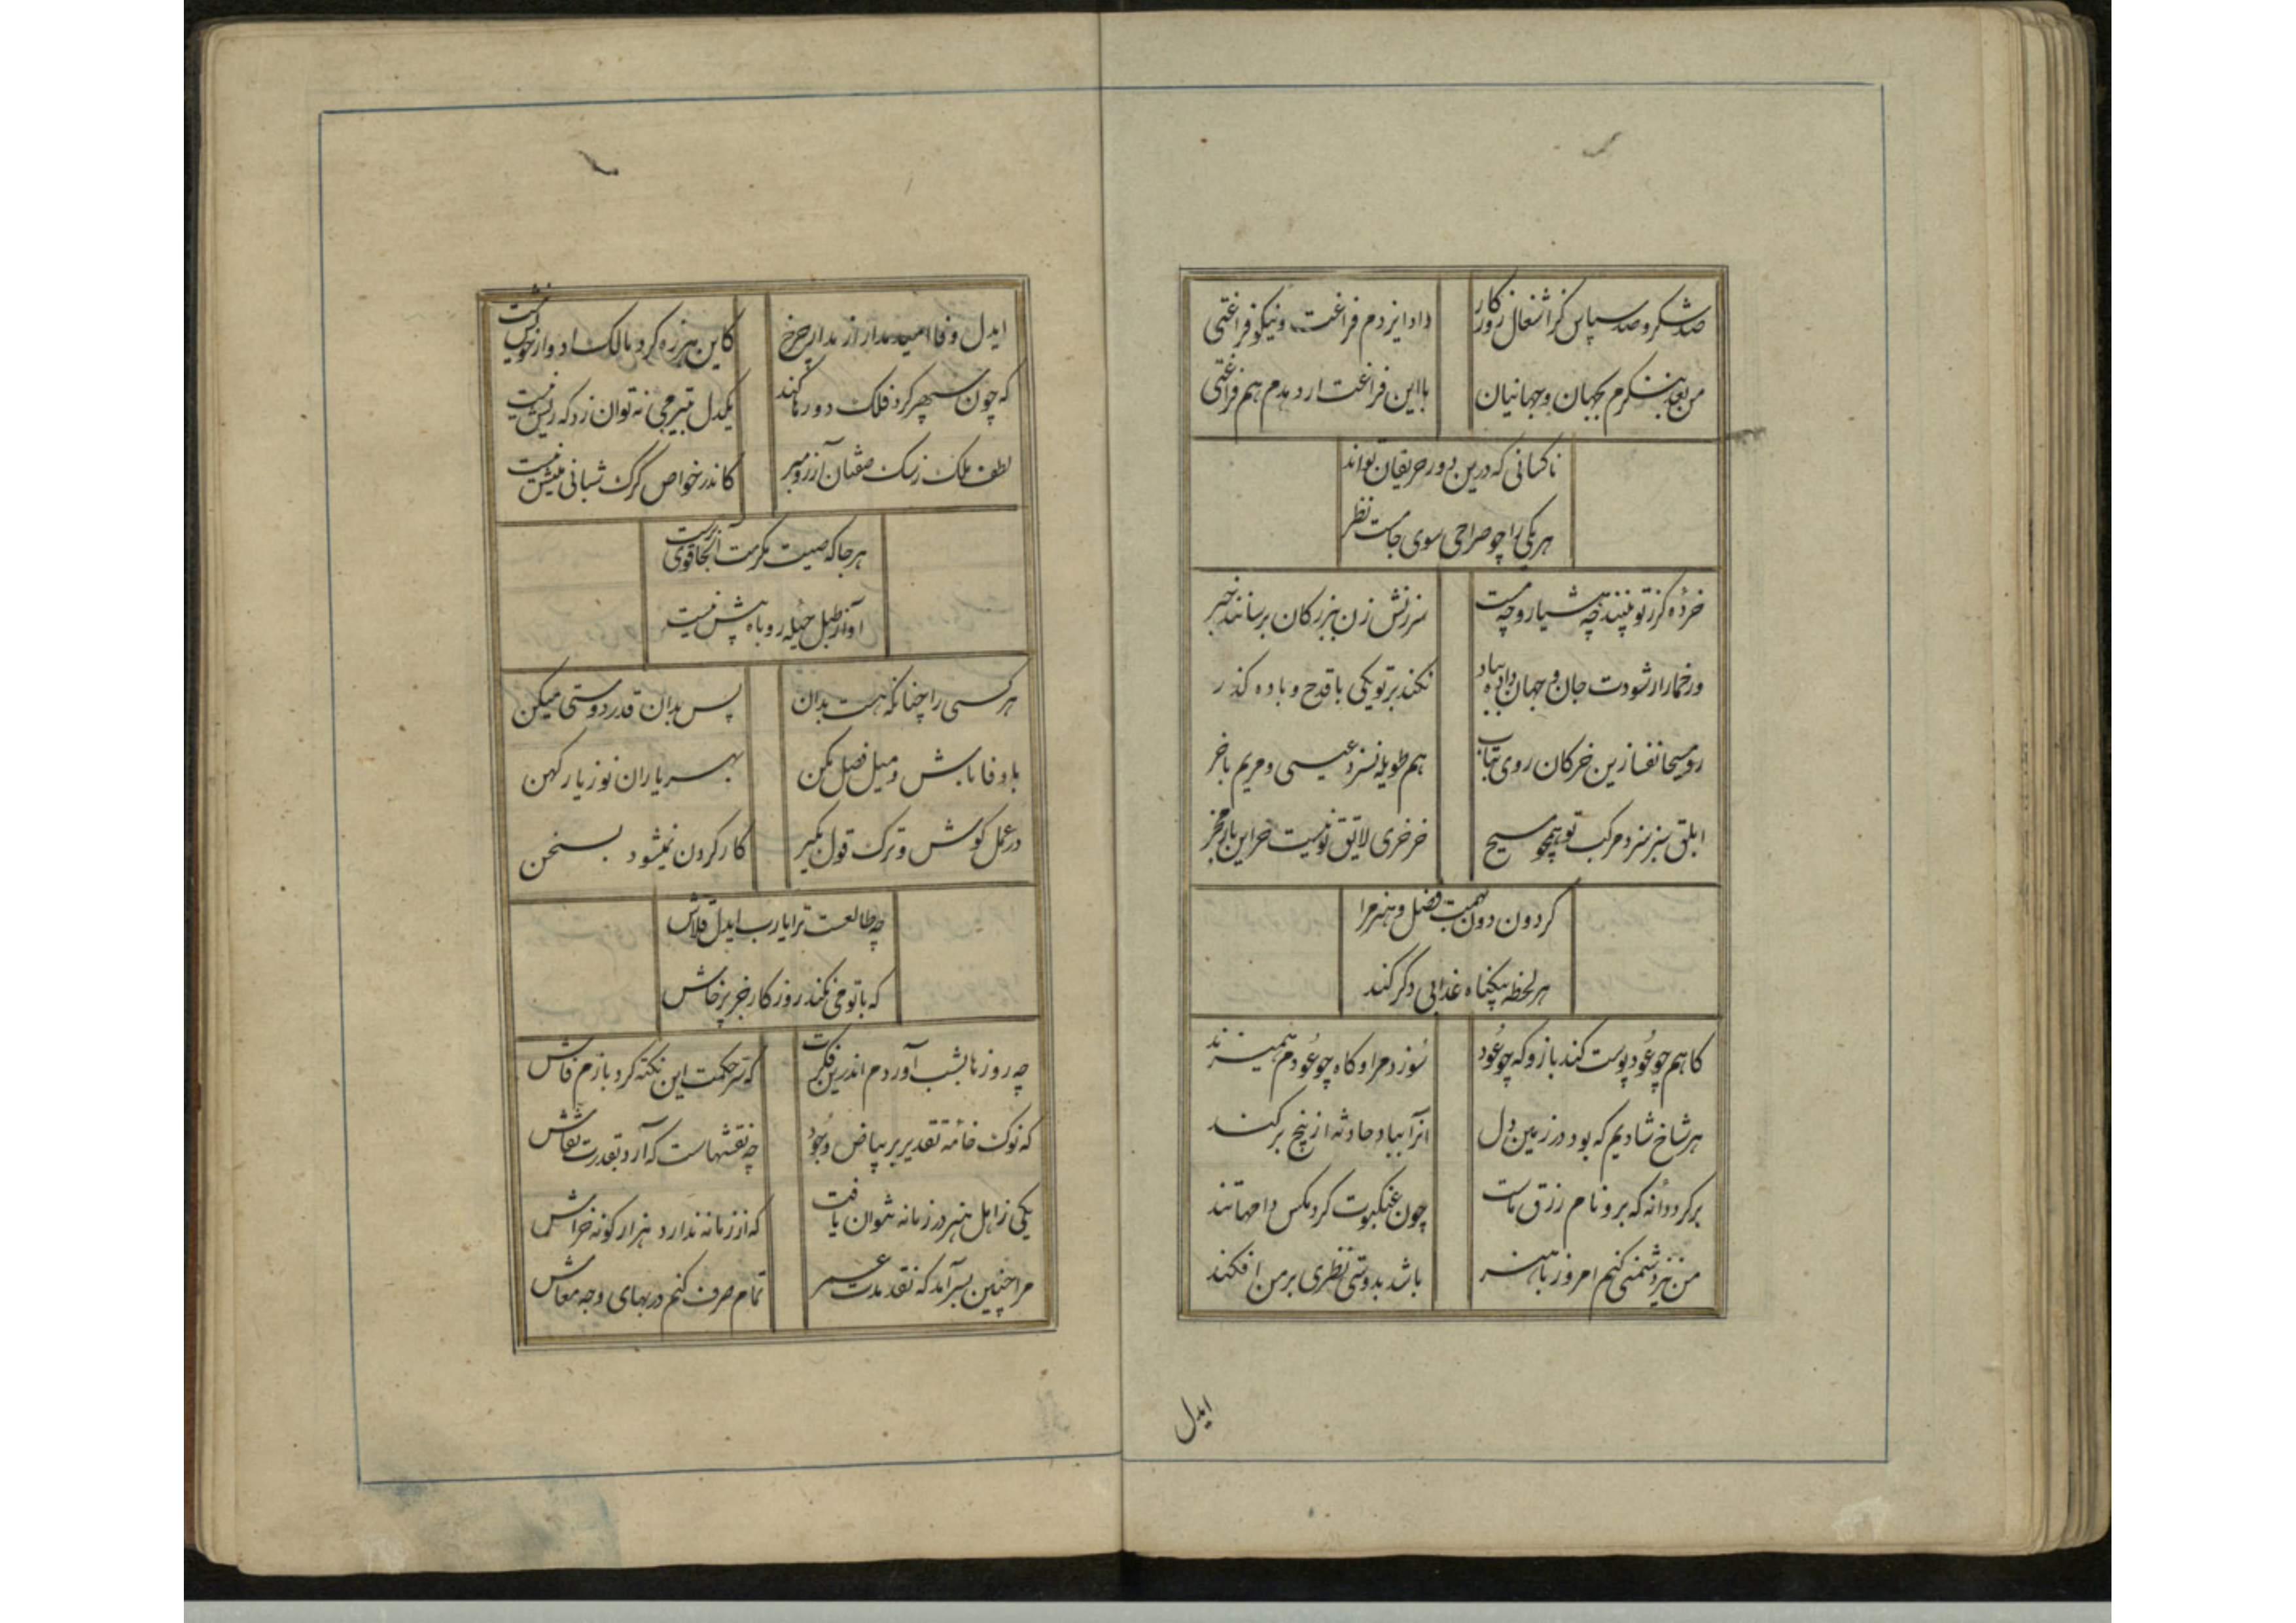 صد شکر و صد سپاس کز اشغال روزکار
داد ایزدم فراغت و نیکو فراغتی
من بعد ننکرم بجهان و جهانیان
با این فراغت ار دهدم هم فراغتی
ناکسانی که درین دور حریفان تواند
هر یکی را چو صراحی سوی جامست نظر
خرده کز تو ببینند چه هشیار و چه مست
سرزنش زن ببزرکان برسانند خبر
ور خمار ار شودت جان و جهان داده بباد
نکند بر تو یکی با قدح و باده کذر
رو مسیحا نفسا زین خرکان روی بتاب
هم طویله نسزد عیسی و مریم با خر
ابلق سبز سزد مرکب تو همچو مسیح
خر خری لایق تو نیست خر این بار مخر
کردون دون بهمت فضل و هنر مرا
هر لحظه بیکناه عذابی دکر کند
کاهم چو عود پوست کند باز و که چو عود
سوزد مرا و کاه چو عودم همیزند
هر شاخ شادیم که بود در زمین دل
آنرا بباد حادثه از بیخ برکند
بر کرد دانه که برو نام رزق ماست
چون عنکبوت کرد مکس دامها تند
من نیز دشمنی کنم امروز با هنر
باشد بدوستی نظری بر من افکند
ایدل
ایدل وفا امید مدار از مدار چرخ
کاین هرزه کرد مالک ادوار خویش نیست
که چون سپهر کرد فلک دورها کند
یکدل بتیر چرخ نتوان زد که ریش نیست
لطف ملک ز سک صفتان آرزو مبر
کاندر خواص کرک شبانی میش نیست
هر جا که صیت مکرمت آنجا قوی ترست
آواز طبل حیله روباه بیش نیست
هر کسی را چنانکه هست بدان
پس بدان قدر دوستی میکن
با وفا باش و میل فصل مکن
بهر یاران نو ز یار کهن
در عمل کوش و ترک قول بگیر
کار کردن نمیشود بسخن
چه طالعست ترا یارب ایدل قلاش
که با تو می نکند روزکار جز پرخاش
چه روزها بشب آوردم اندرین فکرت
که سر حکمت این نکته کرد بازم فاش
که نوک خامه تقدیر بر بیاض وجود
چه نقشهاست که آرد بقدرت نقاش
یکی ز اهل هنر در زمانه نتوان یافت
که از زمانه ندارد هزار کونه خراش
مرا چنین بسر آمد که نقد مدت عمر
تمام صرف کنم در بهای وجه معاش